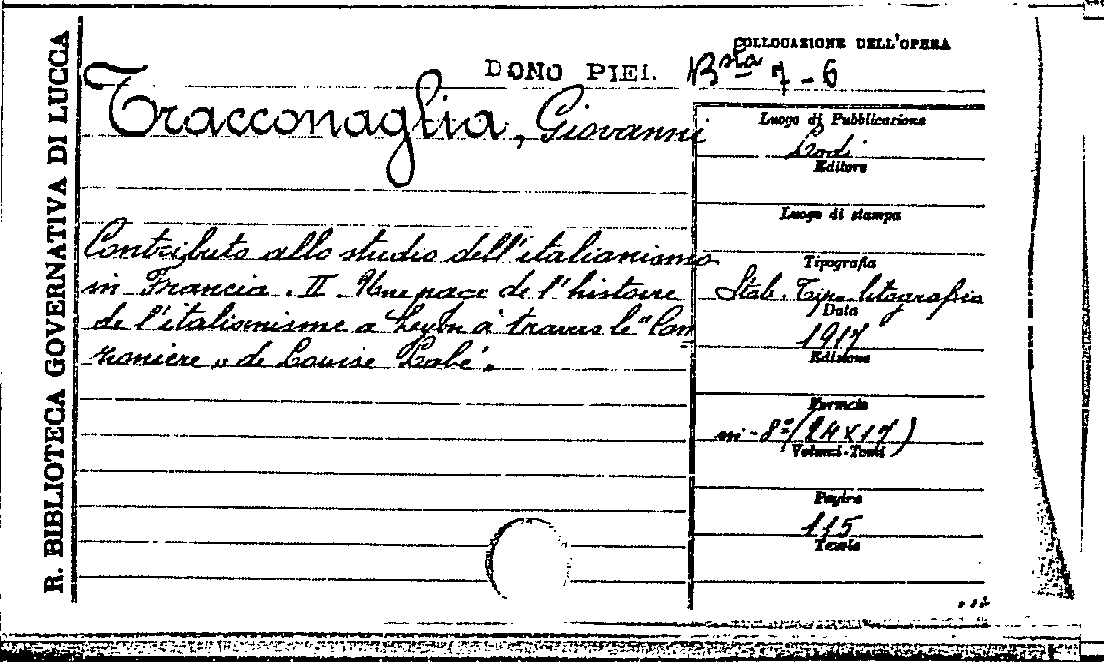 R. BIBLIOTECA GOVERNATIVA DI LUCCA
COLLOCAZIONE DELL'OPERA
DONO PIEI. Bsta 7-6
Tracconaglia, Giovanni
Contributo allo studio dell'italianismo
in Francia. II Une page de l'histoire
de l'italianisme a Lyon à travers le "Can=
zoniere" de Louise Labé.
Luogo di Pubblicazione
Lodi
Editore
Luogo di stampa
Tipografia
Stab. Tip. litografia
Data
1917
Edizione
Formato
in-8°/(24x17)
Volumi-Tomi
Pagine
115
Tavole